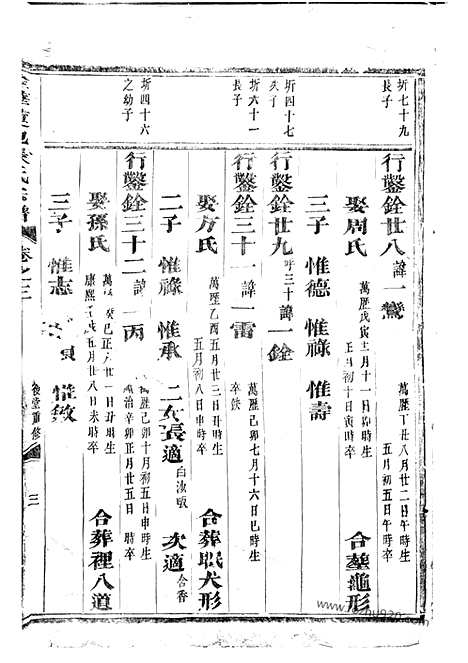 圻七十九
長子
行鑿銓廿八諱一鸞
萬歷丁丑八月廿二日午時生
五月初五日午時卒
娶周氏
萬歷戊寅三月十一日卯時生
正月初十日寅時卒
合塟龜形
三子 惟德 惟祿 惟壽
圻四十七
次子
行鑿銓廿九 三十諱一銓
圻六十一
長子
行鑿銓三十一諱一雷
萬歷己卯七月十六日巳時生
卒缺
娶方氏
萬歷乙酉五月廿三日丑時生
五月初八日申時卒
合葬眠犬形
二子 惟祿 惟承 二女長適 白汝 次適 合香
圻四十六
之幼子
行鑿銓三十二諱一丙
萬歷己卯十月初五日申時生
順治辛卯正月廿五日 時卒
娶孫氏
萬 癸巳正 廿一日丑時生
康熙 五月廿八日未時卒
合葬裡八道
三子 惟志 惟敘
卷之三
後堂重修
三